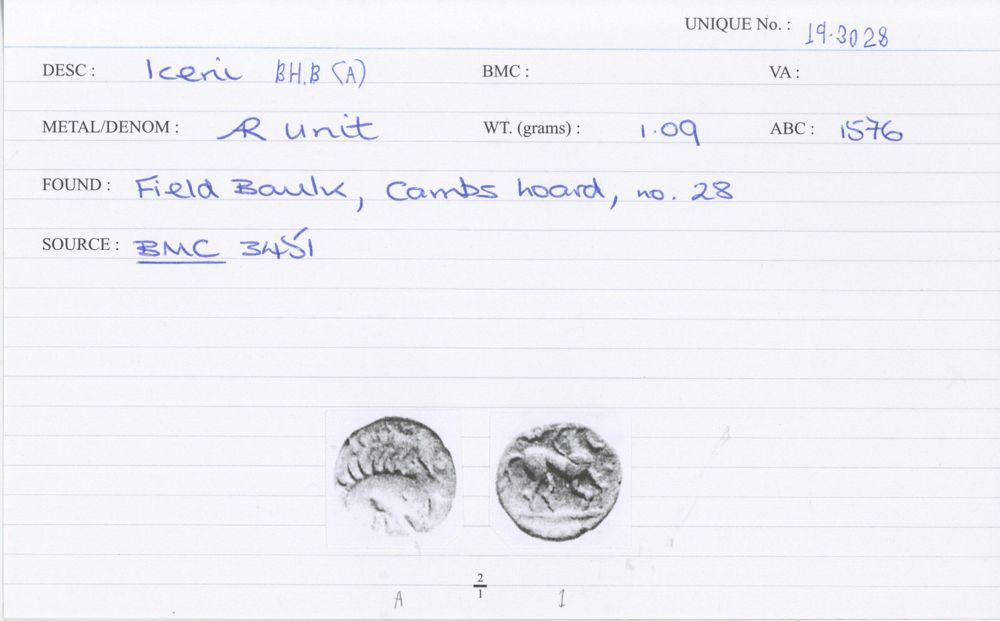 UNIQUE No. : 19.3028
DESC : Iceni BH.B (A) BMC : VA :
METAL/DENOM : AR unit WT. (grams) : 1.09 ABC : 1576
FOUND : Field Baulk, Cambs hoard, no. 28
SOURCE : BMC 3451
2
1
A 1